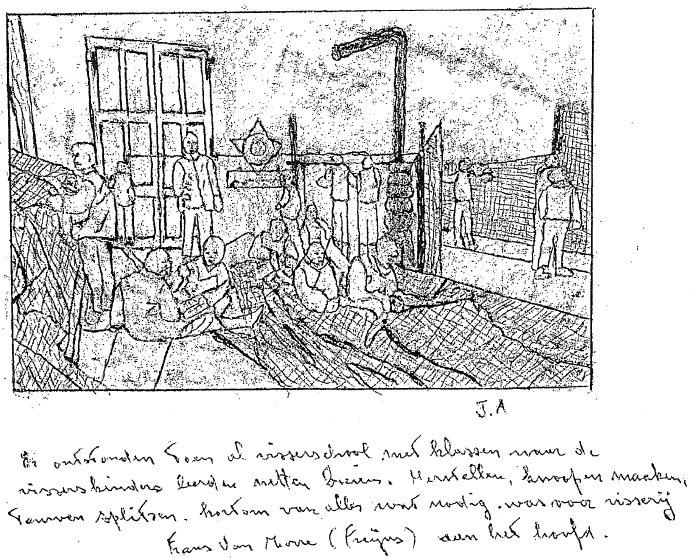 J.A
Er ontstonden toen al visserschool met klassen waar de
visserskinders leerden netten breien. Herstellen, knoopen maaken,
Touwen splitsen. kortom van alles wat nodig was voor visserij
Frans Van Moere ( ) aan het hoofd.